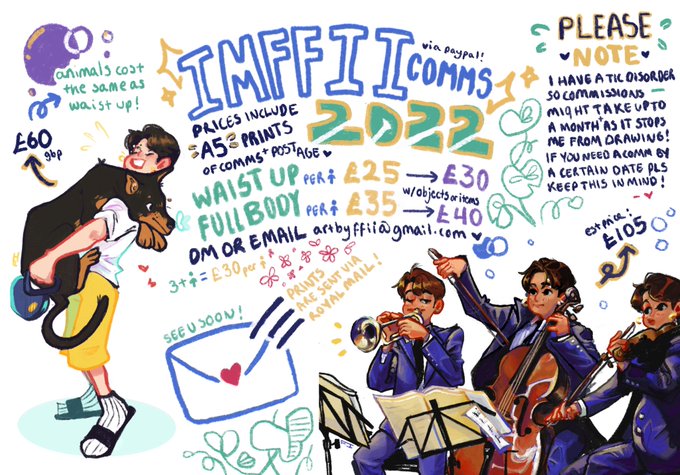 IMFFII COMMS
via paypal!
2022
animals cost
the same as
waist up!
£60
gbp
PRICES INCLUDE
A5 PRINTS
OF COMMS + POSTAGE
WAIST UP PER £25 → £30
w/objects or items
FULL BODY PER £35 → £40
DM OR EMAIL artbyffii@gmail.com
3+ = £30 per
PRINTS
ARE SENT VIA
ROYAL MAIL!
SEE U SOON!
PLEASE
NOTE
I HAVE A TIC DISORDER
SO COMMISSIONS
MIGHT TAKE UP TO
A MONTH+ AS IT STOPS
ME FROM DRAWING!
IF YOU NEED A COMM BY
A CERTAIN DATE PLS
KEEP THIS IN MIND!
est price:
£105